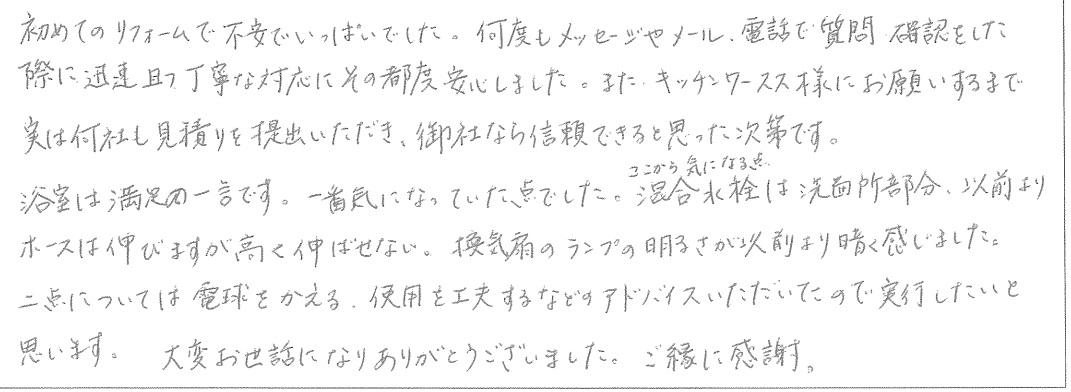 初めてのリフォームで不安でいっぱいでした。何度もメッセージやメール、電話で質問 確認をした
際に迅速且つ丁寧な対応にその都度安心しました。また キッチンワークス様にお願いするまで
実は何社も見積りを提出いただき、御社なら信頼できると思った次第です。
浴室は満足の一言です。一番気になっていた点でした。ここから気になる点 混合水栓は洗面所部分、以前より
ホースは伸びますが高く伸ばせない。換気扇のランプの明るさが以前より暗く感じました。
二点については電球をかえる、使用を工夫するなどのアドバイスいただいたので実行したいと
思います。 大変お世話になりありがとうございました。ご縁に感謝。